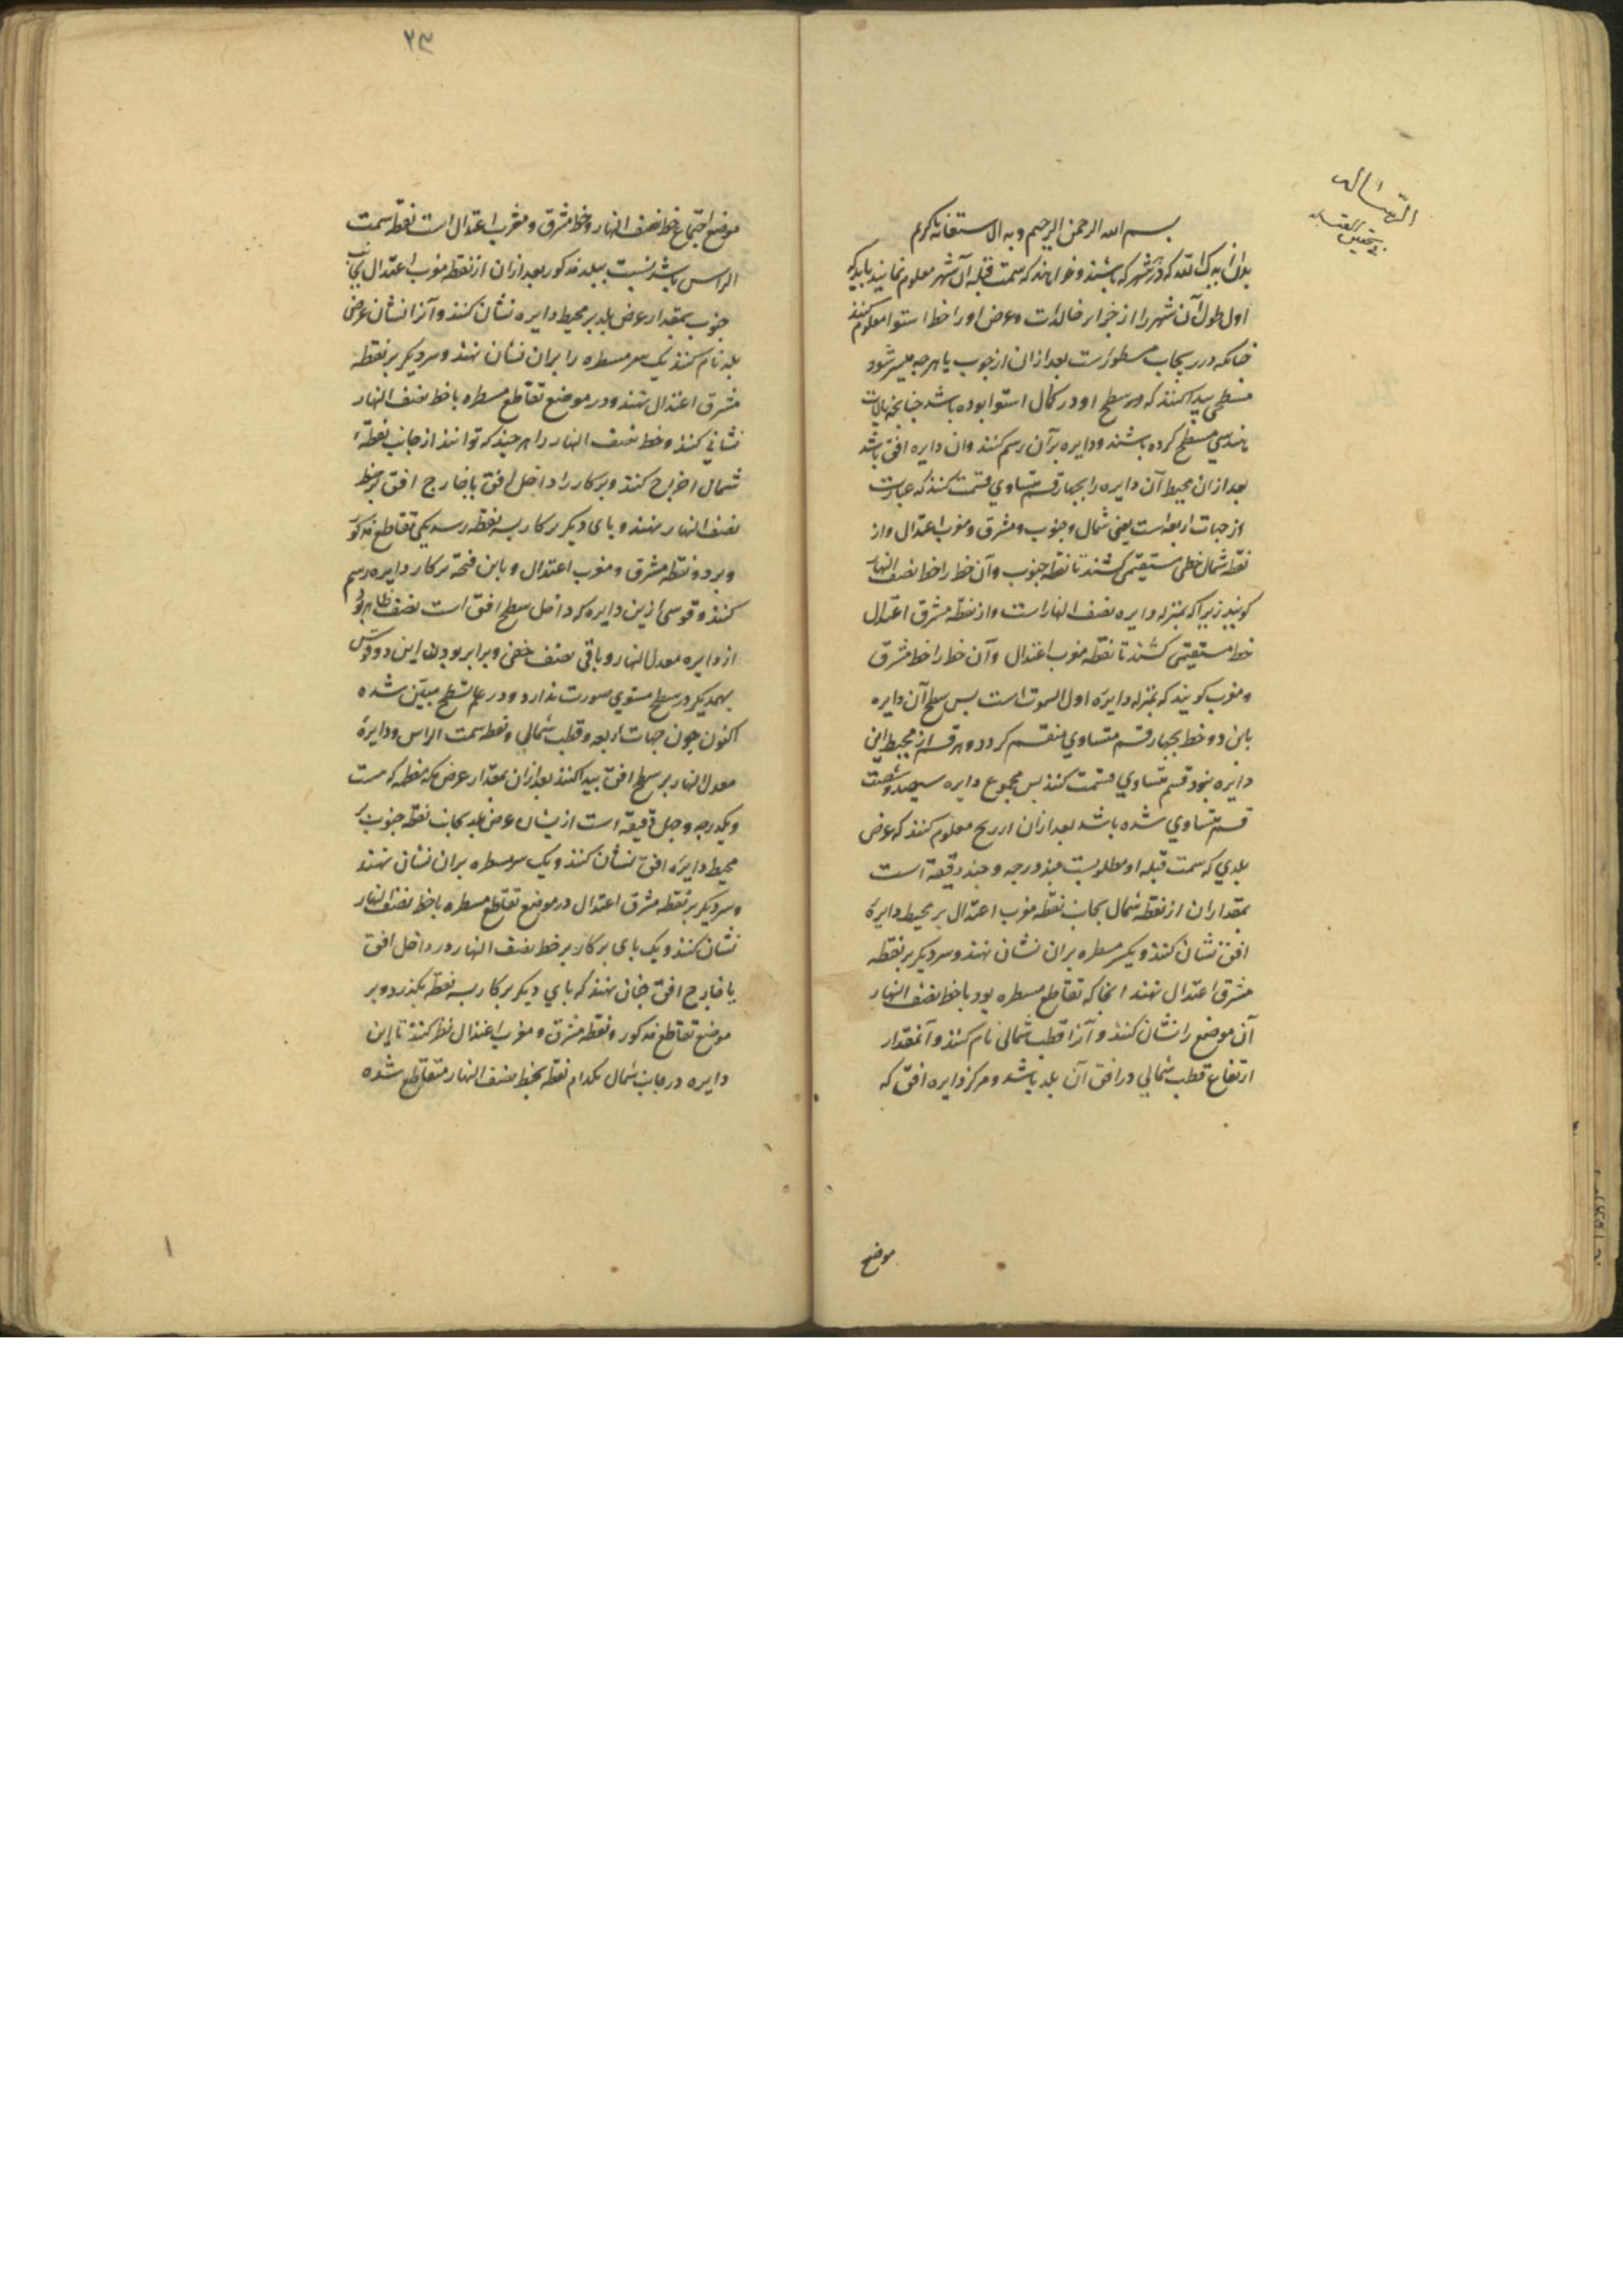 الرسالة
فی تحقیق القبله
بسم الله الرحمن الرحیم وبه الاستعانه یا کریم
بدان ایدک الله که در هر شهر که باشند و خواهند که سمت قبله آن شهر معلوم نمایند باید که
اول طول آن شهر را از جزایر خالدات و عرض او را از خط استوا معلوم کنند
چنانکه در زیجات مسطورست بعد از آن از چوب یا هر چه میسر شود
مسطحی پیدا کنند که سطح او در کمال استوا بوده باشد چنانچه بالات
هندسی مسطح کرده باشند و دایره بر آن رسم کنند وان دایره افق باشد
بعد از ان محیط آن دایره را بچهار قسم متساوی قسمت کنند که عبارت
از جهات اربعه است یعنی شمال و جنوب و مشرق و مغرب اعتدال و از
نقطه شمال خطی مستقیم کشند تا نقطه جنوب وآن خط را خط نصف النهار
کویند زیرا که بمنزله دایره نصف النهار است و از نقطه مشرق اعتدال
خط مستقیمی کشند تا نقطه مغرب اعتدال وآن خط را خط مشرق
و مغرب کویند که بمنزله دایره اول السموت است پس سطح آن دایره
باین دو خط بچهار قسم متساوی منقسم کردد و هر قسم از محیط این
دایره بنود قسم متساوی قسمت کنند پس مجموع دایره سیصد و شصت
قسم متساوی شده باشد بعد از ان از زیج معلوم کنند که عرض
بلدی که سمت قبله او مطلوبست چند درجه و چند دقیقه است
بمقدار ان از نقطه شمال بجانب نقطه مغرب اعتدال بر محیط دایرهٔ
افق نشان کنند و یکسر مسطره بران نشان نهند و سر دیکر بر نقطه
مشرق اعتدال نهند انجا که تقاطع مسطره بود با خط نصف النهار
آن موضع را نشان کنند و آنرا قطب شمالی نام کنند و آنمقدار
ارتفاع قطب شمالی در افق آن بلد باشد و مرکز دایره افق که
موضع
۲۳
موضع اجتماع خط نصف النهار و خط مشرق و مغرب اعتدال است نقطه سمت
الراس باشد نسبت ببلد مذکور بعد از ان از نقطه مغرب اعتدال بجانب
جنوب بمقدار عرض بلد بر محیط دایره نشان کنند و آنرا نشان عرض
بلد نام کنند یک سر مسطره را بران نشان نهند و سر دیکر بر نقطه
مشرق اعتدال نهند و در موضع تقاطع مسطره با خط نصف النهار
نشانی کنند و خط نصف النهار را هر چند که توانند از جانب نقطهٔ
شمال اخراج کنند و پرکار را داخل افق یا خارج افق بر خط
نصف النهار نهند و پای دیکر پرکار بسه نقطه رسد یکی تقاطع مذکور
و بر دو نقطه مشرق و مغرب اعتدال و باین فتحه پرکار دایره رسم
کنند و قوسی ازین دایره که داخل سطح افق است نصف ظاهر بود
از دایره معدل النهار و باقی نصف خفی و برابر بودن این دو قوس
بهمدیکر در سطح مستوی صورت ندارد و در علم تسطیح مبین شده
اکنون چون جهات اربعه و قطب شمالی و نقطه سمت الراس و دایرهٔ
معدل النهار بر سطح افق پیدا کنند بعد از ان بمقدار عرض مکه معظمه که بیست
و یکدرجه و چهل دقیقه است از نشان عرض بلد بجانب نقطه جنوب بر
محیط دایره افق نشان کنند و یک سر مسطره بران نشان نهند
و سر دیکر بر نقطه مشرق اعتدال در موضع تقاطع مسطره با خط نصف النهار
نشان کنند و یک پای پرکار بر خط نصف النهار در داخل افق
یا خارج افق چنان نهند که پای دیکر پرکار بسه نقطه بکذرد و بر
موضع تقاطع مذکور و نقطه مشرق و مغرب اعتدال نظر کنند تا این
دایره در جانب شمال بکدام نقطه بخط نصف النهار متقاطع شده